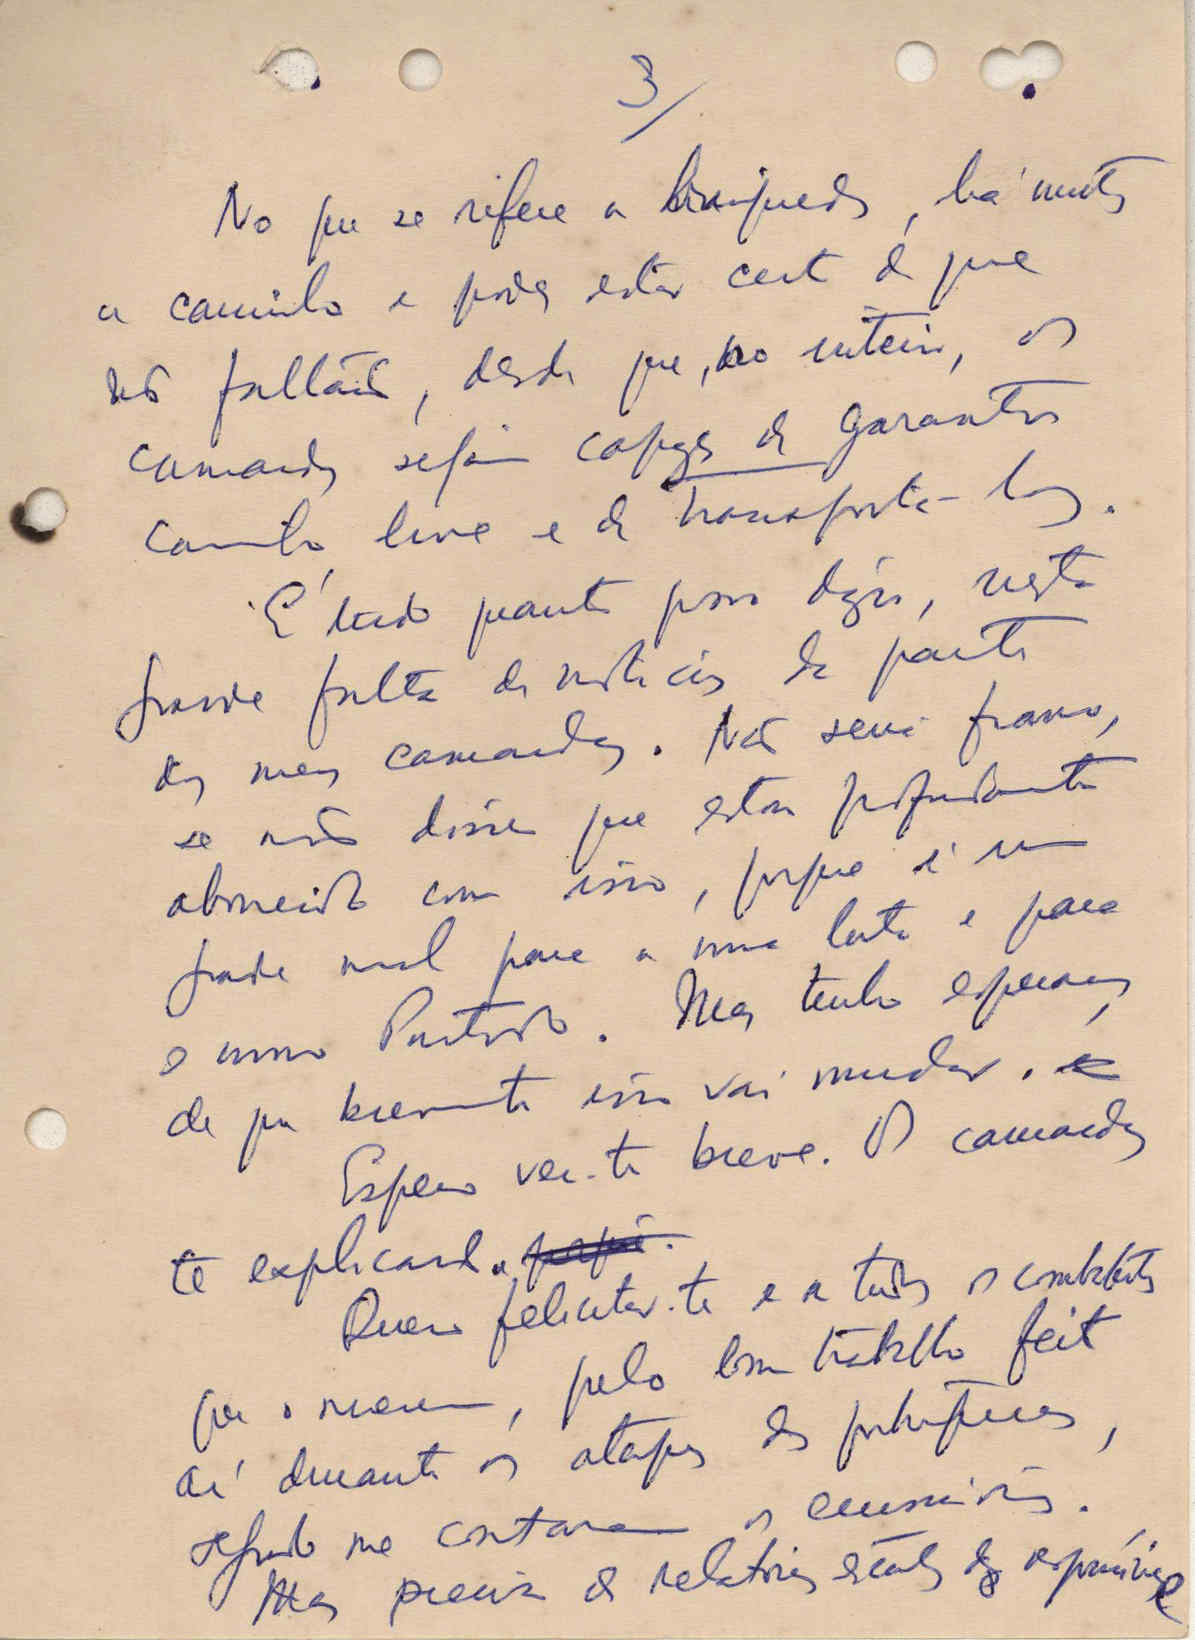 3/
No que se refere a brinquedos, há muitos
a caminho e podes estar certo de que
não faltarão, desde que, no interior, os
camaradas sejam capazes de garantir
caminho livre e de transportá-los.
É tudo quanto posso dizer, nesta
grande falta de notícias da parte
dos meus camaradas. Não seria franco,
se não dissesse que estou profundamente
aborrecido com isso, porque é um
grande mal para a nossa luta e para
o nosso Partido. Mas tenho esperanças,
de que brevemente isso vai mudar.
Espero ver-te breve. Os camaradas
te explicarão porquê.
Quero felicitar-te e a todos os combatentes
que o merecem, pelo bom trabalho feito
aí durante os ataques dos portugueses,
segundo me contaram os emissários.
Mas preciso de relatórios escritos dos responsáveis